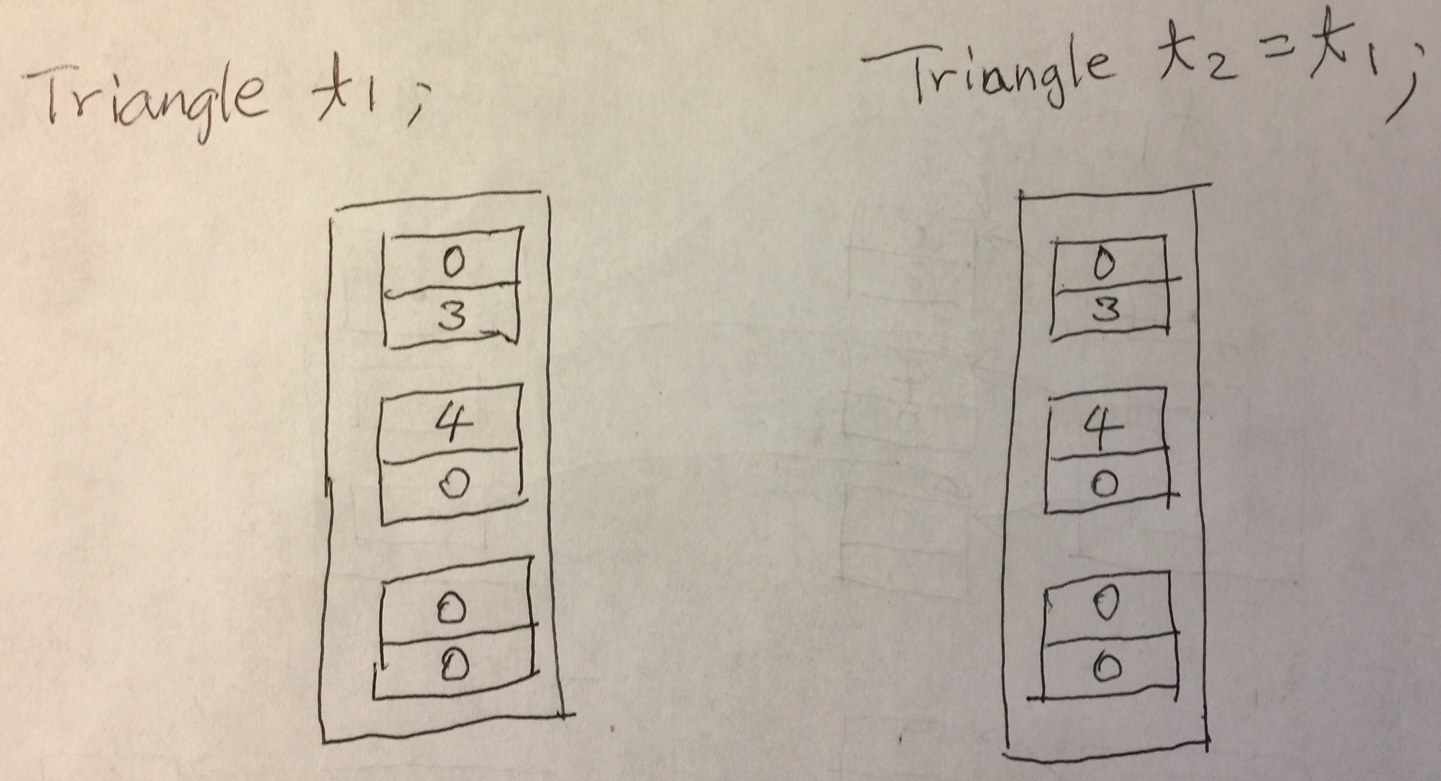 Triangle t1;
0
3
4
0
0
0
Triangle t2 = t1;
0
3
4
0
0
0